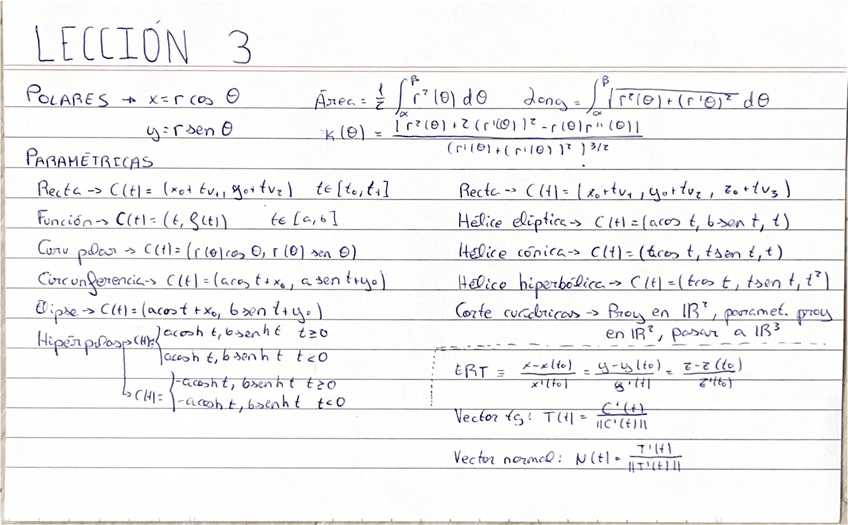 LECCIÓN 3
POLARES → x = r cos θ
y = r sen θ
Área = 1/2 ∫_α^β r²(θ) dθ   Long = ∫_α^β √(r²(θ) + (r'θ)²) dθ
K(θ) = |r²(θ) + 2(r'(θ))² - r(θ)r''(θ)| / (r'(θ) + (r'(θ))²)^3/2
PARAMÉTRICAS
Recta → C(t) = (x₀ + tv₁, y₀ + tv₂)   t∈[t₀, t₁]
Función → C(t) = (t, f(t))   t∈[a, b]
Curv polar → C(t) = (r(θ) cos θ, r(θ) sen θ)
Circunferencia → C(t) = (a cos t + x₀, a sen t + y₀)
Elipse → C(t) = (a cos t + x₀, b sen t + y₀)
Hipérpolas → C(t) = { a cosh t, b senh t   t ≥ 0
a cosh t, b senh t   t < 0
↳ C(t) = { -a cosh t, b senh t   t ≥ 0
-a cosh t, b senh t   t < 0
Recta → C(t) = (x₀ + tv₁, y₀ + tv₂, z₀ + tv₃)
Hélice elíptica → C(t) = (a cos t, b sen t, t)
Hélice cónica → C(t) = (t cos t, t sen t, t)
Hélice hiperbólica → C(t) = (t cos t, t sen t, t²)
Corte cuádricas → Proy en IR², paramet. proy
en IR², pasar a IR³
ERT ≡ x - x(t₀) / x'(t₀) = y - y(t₀) / y'(t) = z - z(t₀) / z'(t₀)
Vector tg: T(t) = C'(t) / ||C'(t)||
Vector normal: N(t) = T'(t) / ||T'(t)||